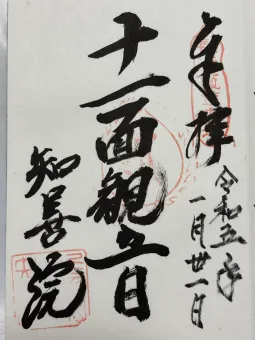 奉拝
令和五年
一月廿一日
十一面観音
知善院